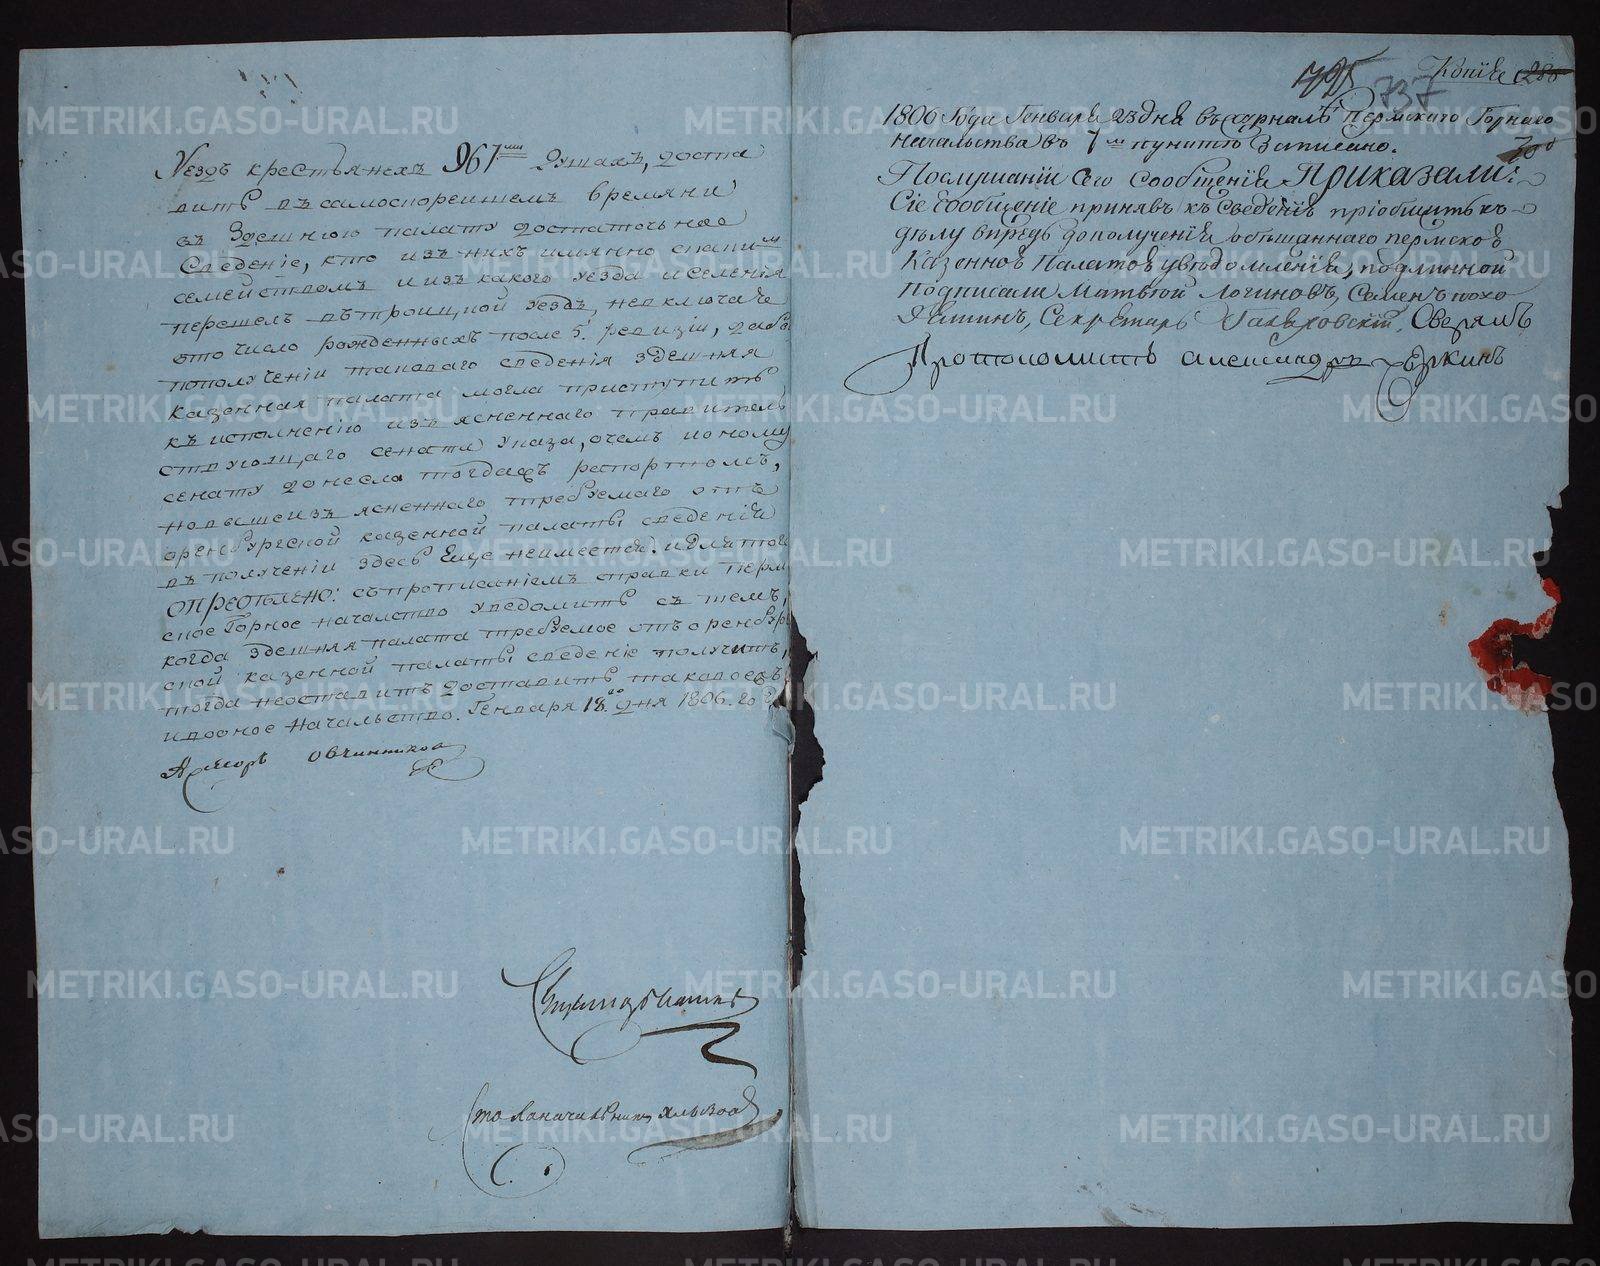 уездъ крестьянехъ 967ми душахъ, доста
вить въ самоскорейшемъ времяни
въ здешнюю палату достаточное
Сведение, кто изъ нихъ имянно спатим
семействомъ и изъ какого уезда и селения
перешелъ въ троицкой уездъ, не включая
въ то число рожденныхъ после 5й ревизiи, дабы
по полученiи таковаго сведенiя здешняя
казенная палата могла приступить
къ исполнению изъясненнаго правитель
ствующаго сената указа, о чемъ и оному
сенату донесла тогда репортомъ,
но вышеизъясненнаго требуемаго отъ
оренбургской казенной палаты сведенiя
въ полученiи здесь еще неимеется: и для того
определено: съ прописанiемъ справки перм
ское Горное началство уведомить съ темъ,
когда здешняя палата требуемое отъ оренбург
ской казенной палаты сведенiе получитъ,
тогда неоставитъ доставить таковое
и в оное Начальство. Генваря 18го дня 1806. го
Овчинниковъ
Столоначальникъ
Копiя 280
725 737
1806 Года Генваря 23 дня въ журналъ Пермскаго Горнаго
Начальства въ 7м пункте Записано.
300
По слушанiи сего сообщенiя Приказали:
Сiе сообщенiе принявъ къ сведенiю прiобщить къ
делу впредь до полученiя обещаннаго пермской
Казенной Палатой уведомленiя, подлинной
Подписали Матвей Логиновъ, Семенъ похо
дяшинъ, Секретарь Гальховскiй, Сверялъ
Протоколистъ александръ Черкинъ
METRIKI.GASO-URAL.RU